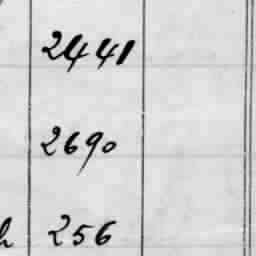 2441
2690
h 256